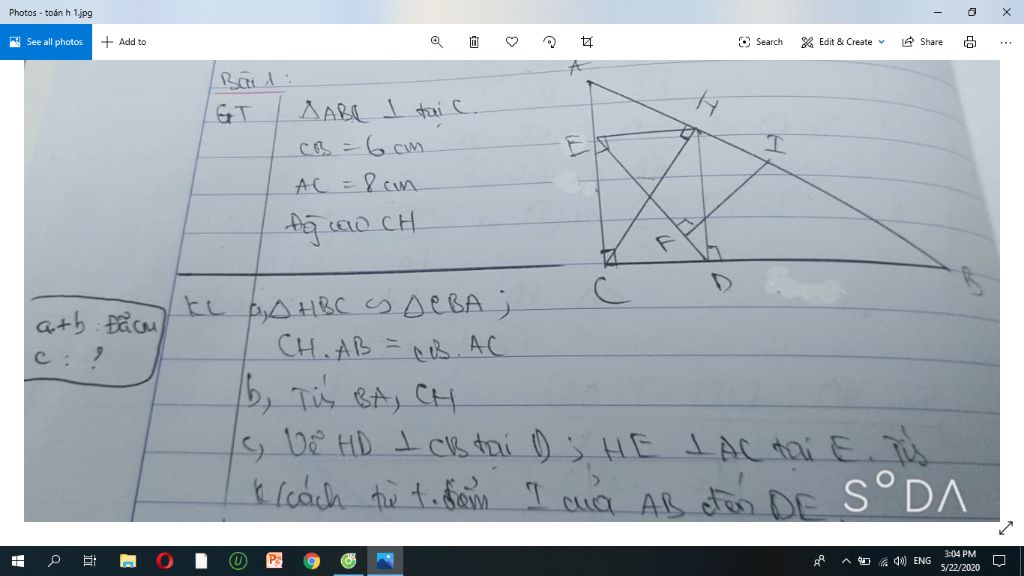 Photos - toán h 1.jpg
See all photos
Add to
Search
Edit & Create
Share
Bài 1:
GT
ΔABC ⊥ tại C.
CB = 6 cm
AC = 8 cm
Đg cao CH
A
H
I
E
F
C
D
B
a+b: Đã cm
c: ?
KL a, ΔHBC ∽ ΔCBA ;
CH.AB = CB.AC
b, Tính BA, CH
c, Vẽ HD ⊥ CB tại D ; HE ⊥ AC tại E. Tính
k/cách từ t.điểm I của AB đến DE
SODA
ENG
3:04 PM
5/22/2020